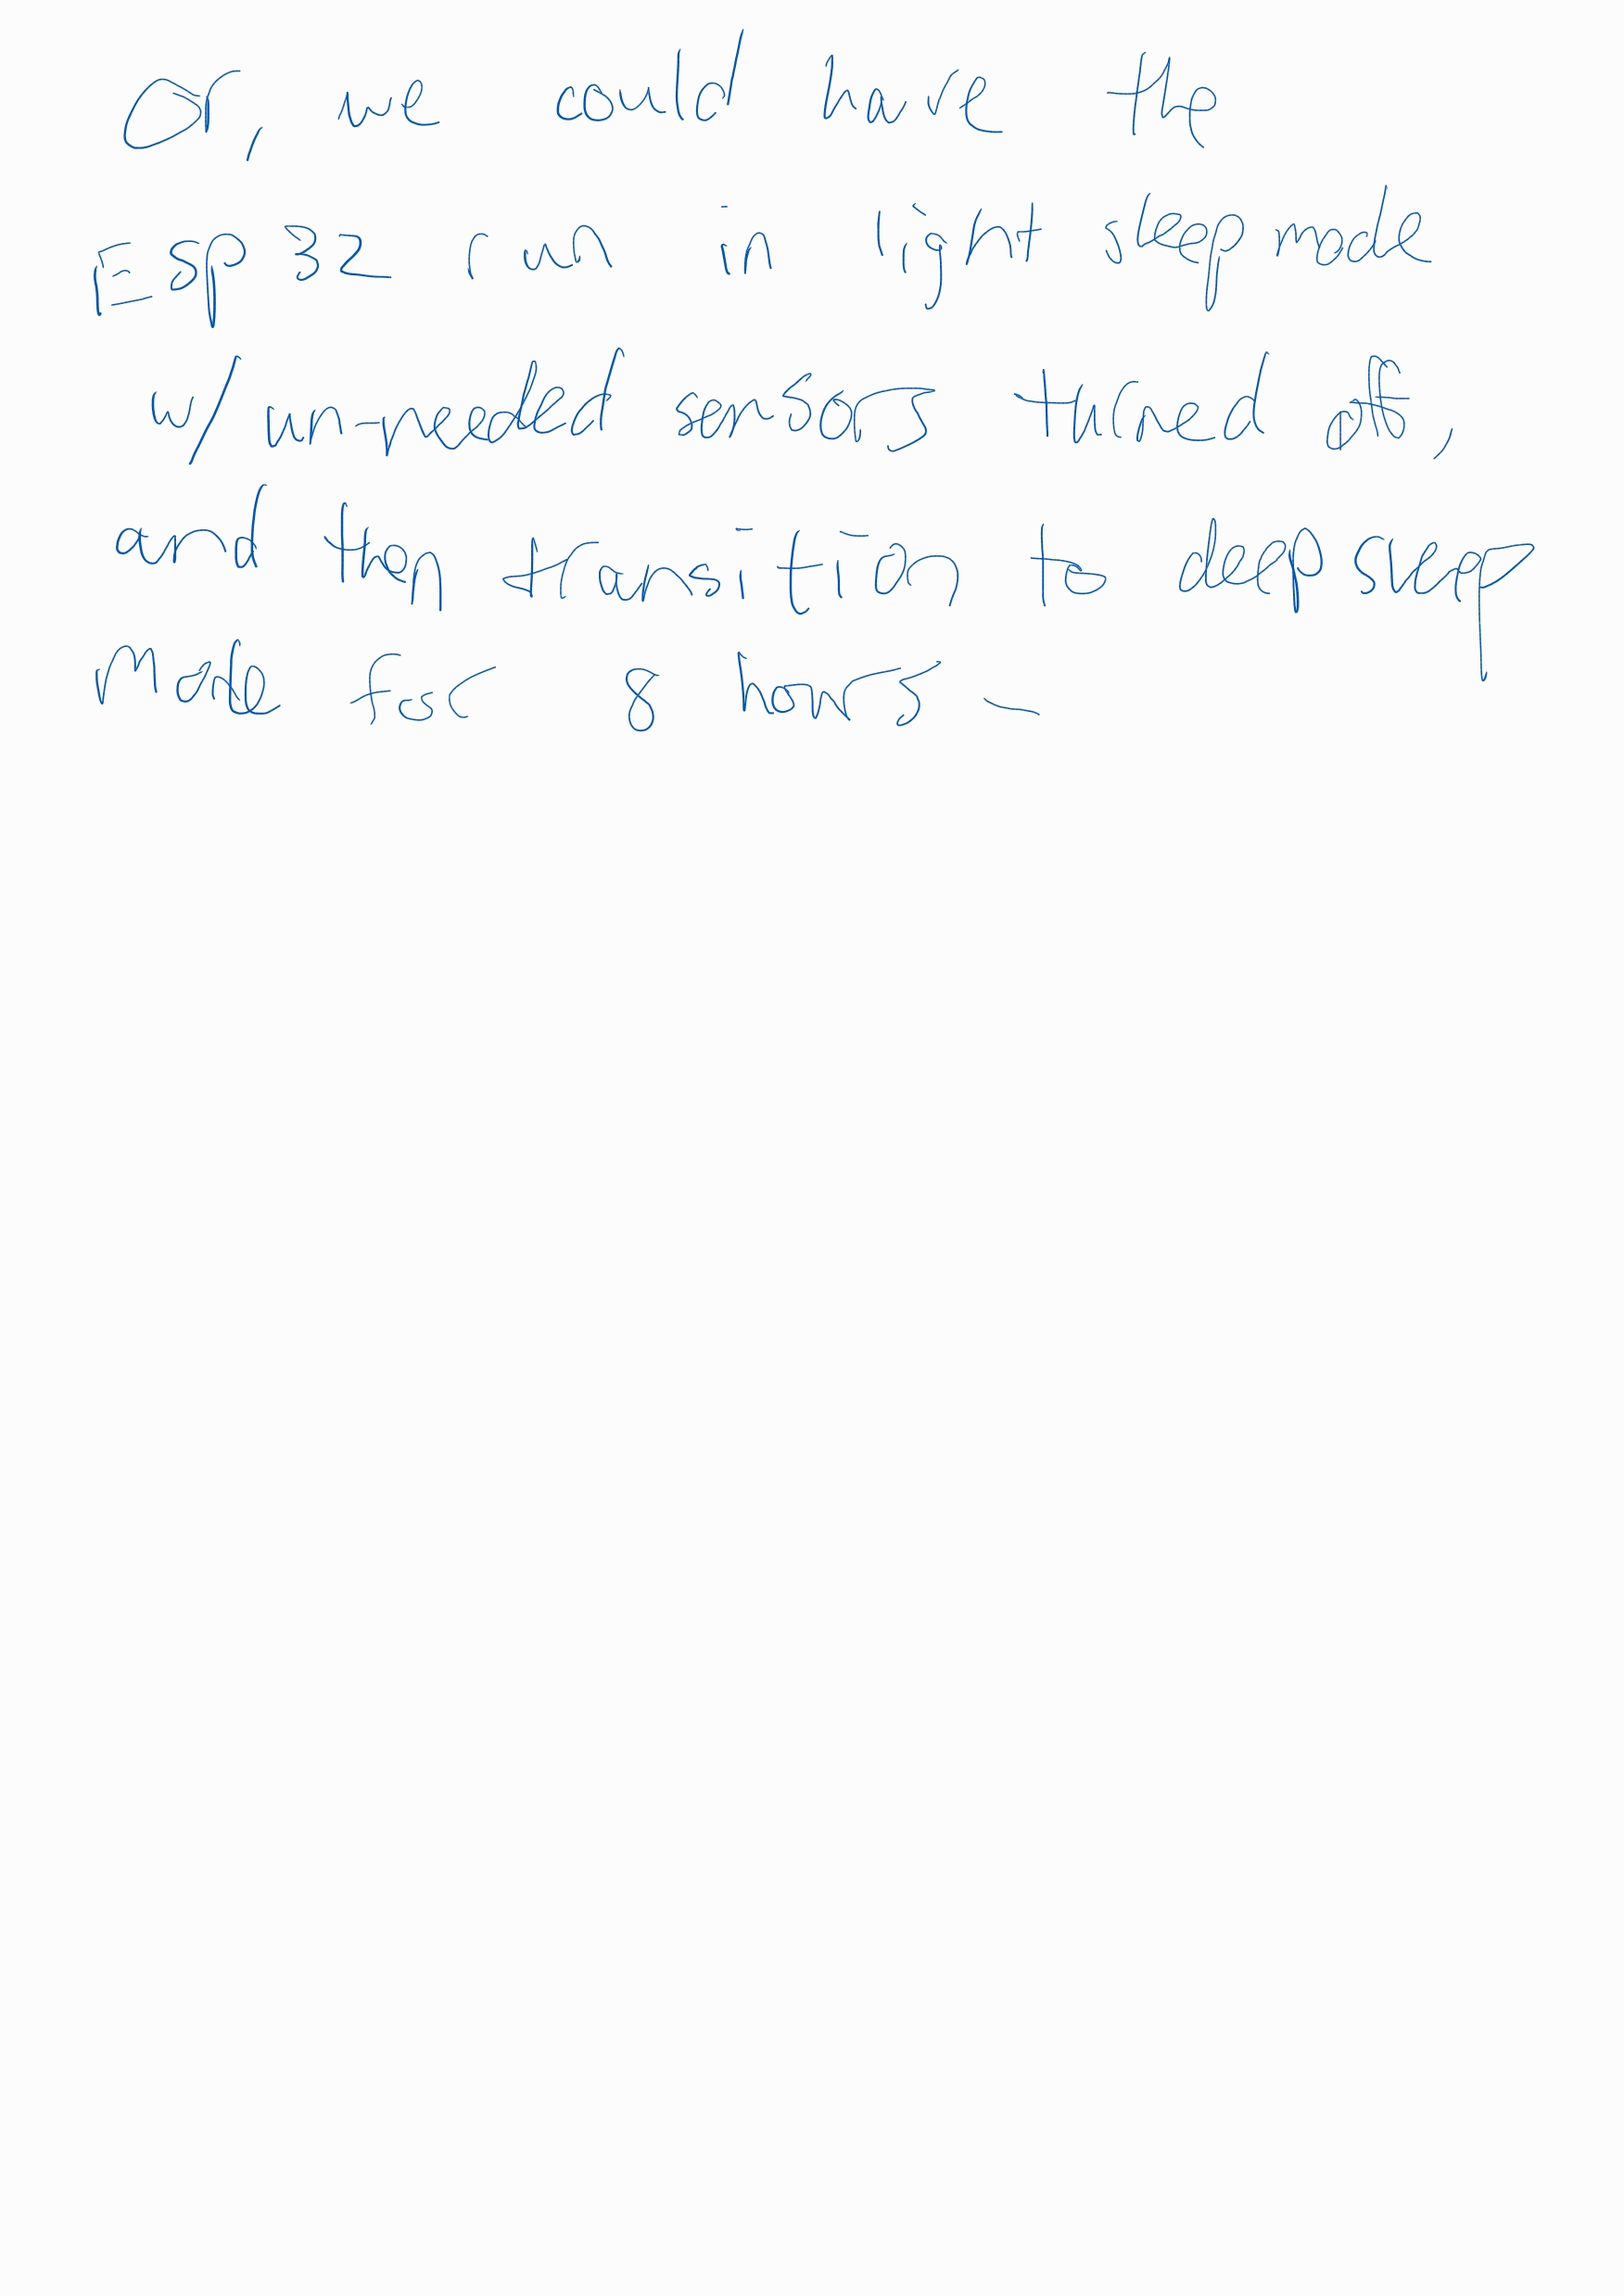 Or, we could have the
Esp 32 run in light sleep mode
w/ un-needed sensors turned off,
and then transition to deep sleep
Mode for 8 hours -